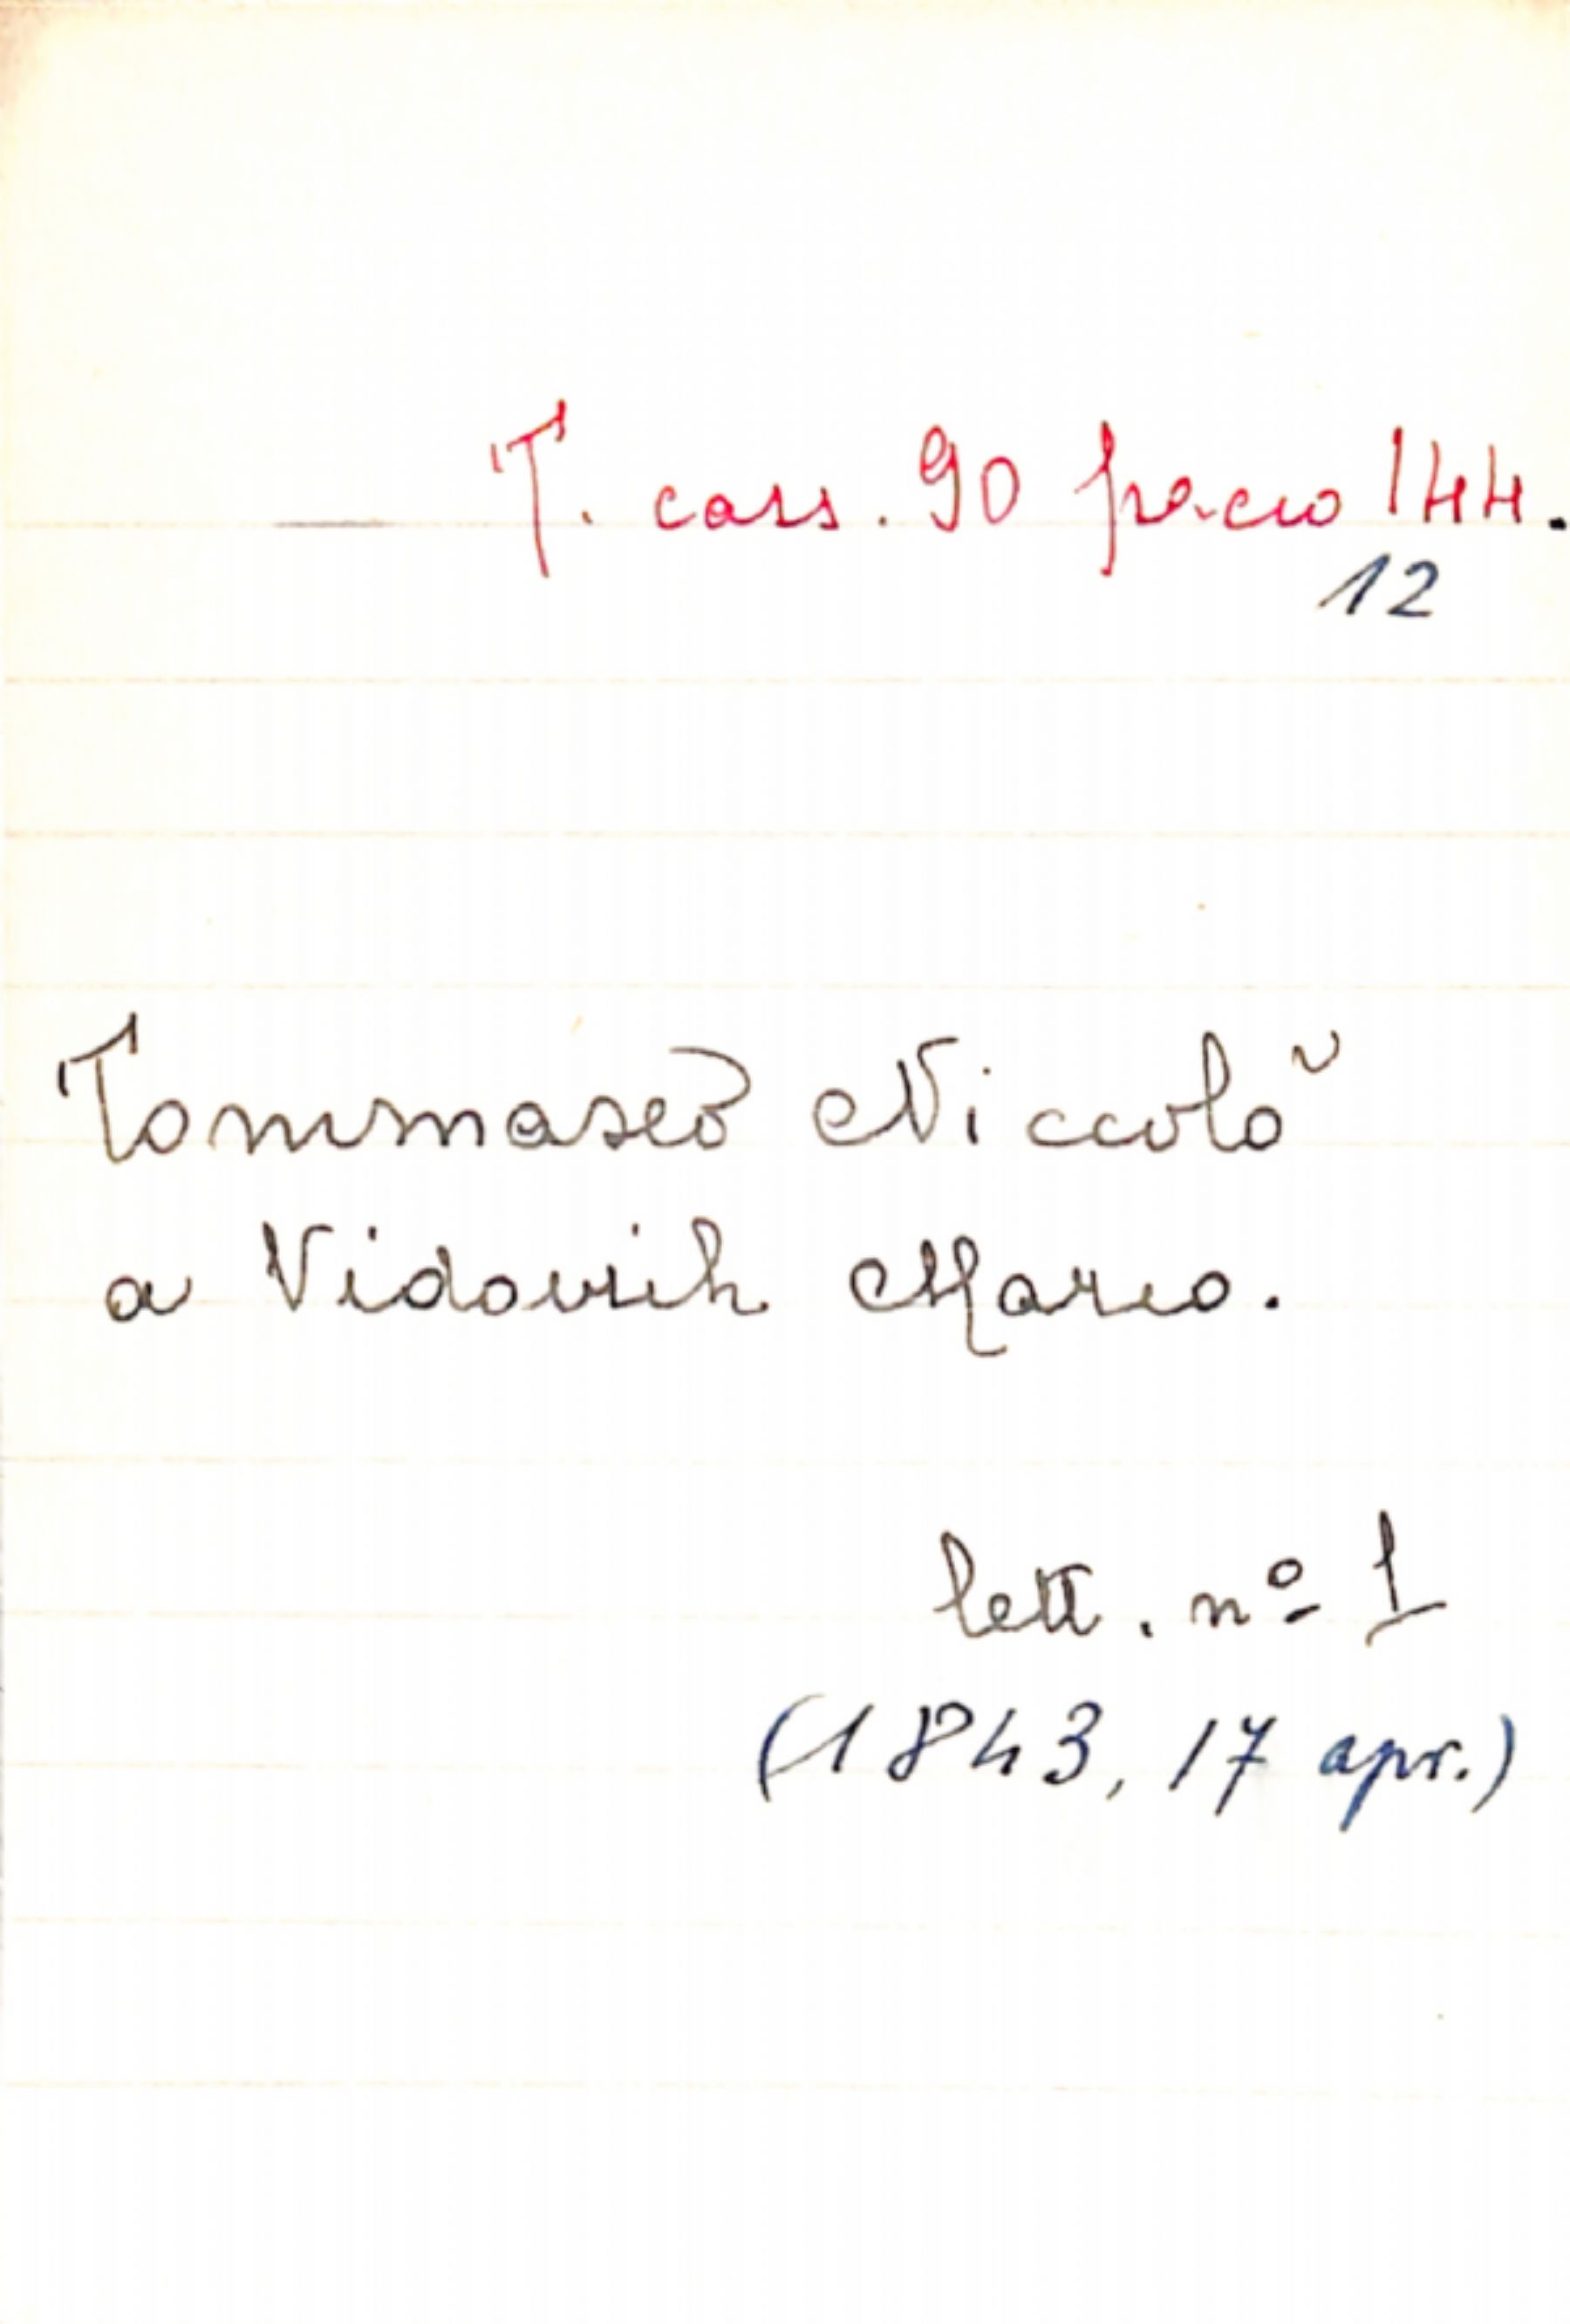 T. cass. 90 pacco 144.
12
Tommaseo Niccolò
a Vidovich Marco.
lett. nº 1
(1843, 17 apr.)